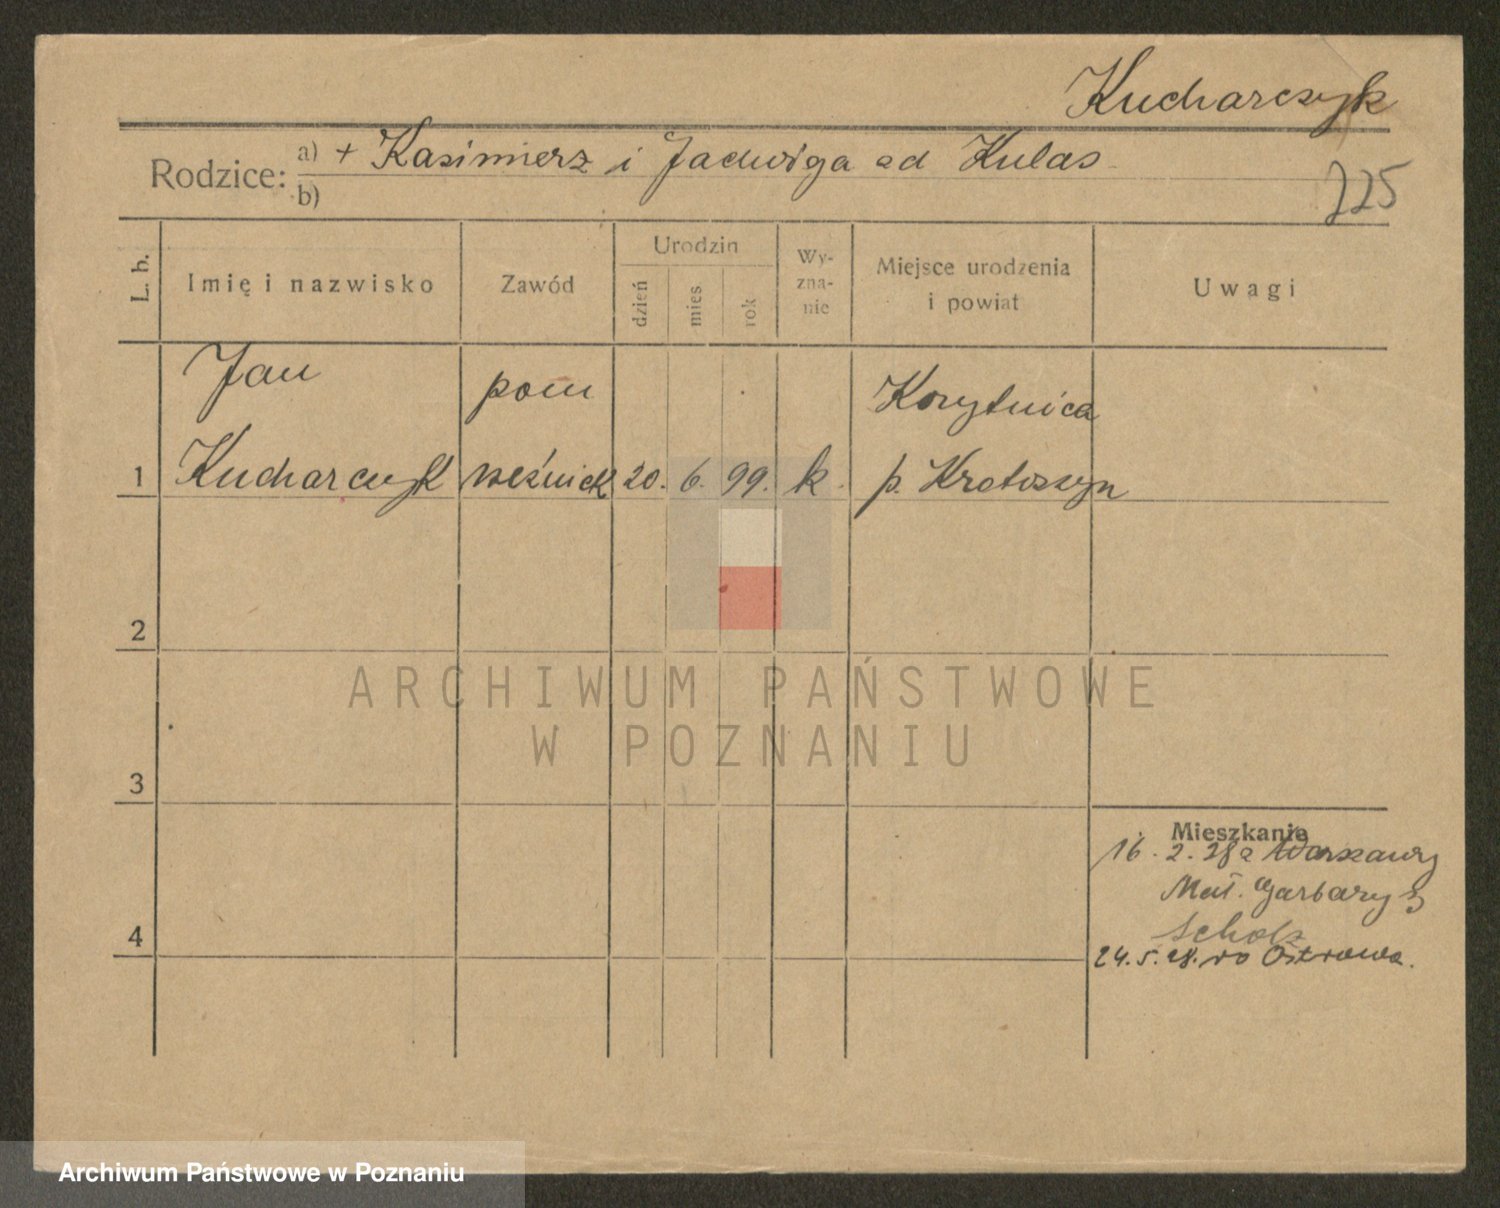 Kucharczyk
Rodzice: a) + Kasimierz i Jadwiga od Kulas
b)
225
L. b.
Imię i nazwisko
Zawód
Urodzin
dzień
mies
rok
Wy-
zna-
nie
Miejsce urodzenia
i powiat
Uwagi
Jan
pom
Korytnica
1 Kucharczyk rzeźnick 20. 6. 99. k. p. Krotoszyn
2
ARCHIWUM PAŃSTWOWE
W POZNANIU
3
Mieszkanie
16. 2. 28 z Warszawy
Garbary
Scholz
4
24. 5. 28. do Ostrowa.
Archiwum Państwowe w Poznaniu